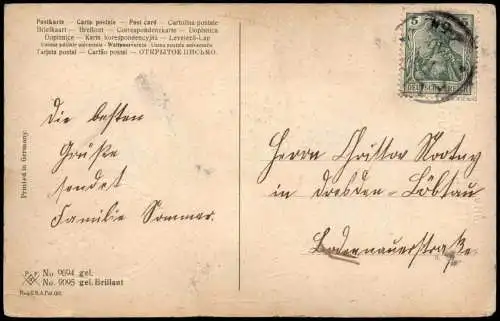 Postkarte – Carte postale – Post card – Cartolina postale
Briefkaart – Brefkort – Correspondenzkarte – Dopisnica
Dopisnice – Karta korespondencyjna – Levelező-Lap
Unione postale universale – Weltpostverein – Union postale universelle
Tarjeta postal – Cartão postal – ОТКРЫТОЕ ПИСЬМО.
5
5
DEUTSCHES REICH
Die besten
Grüße
sendet
Familie Sommer.
Herrn
in Dresden-Löbtau
Printed in Germany.
No. 9694 gel.
No. 9095 gel. Brillant